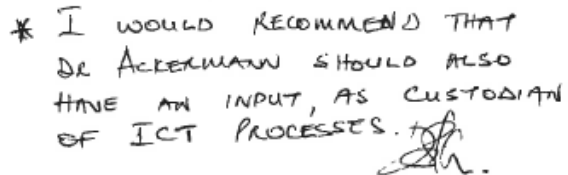 * I WOULD RECOMMEND THAT
DR ACKERMANN SHOULD ALSO
HAVE AN INPUT, AS CUSTODIAN
OF ICT PROCESSES.